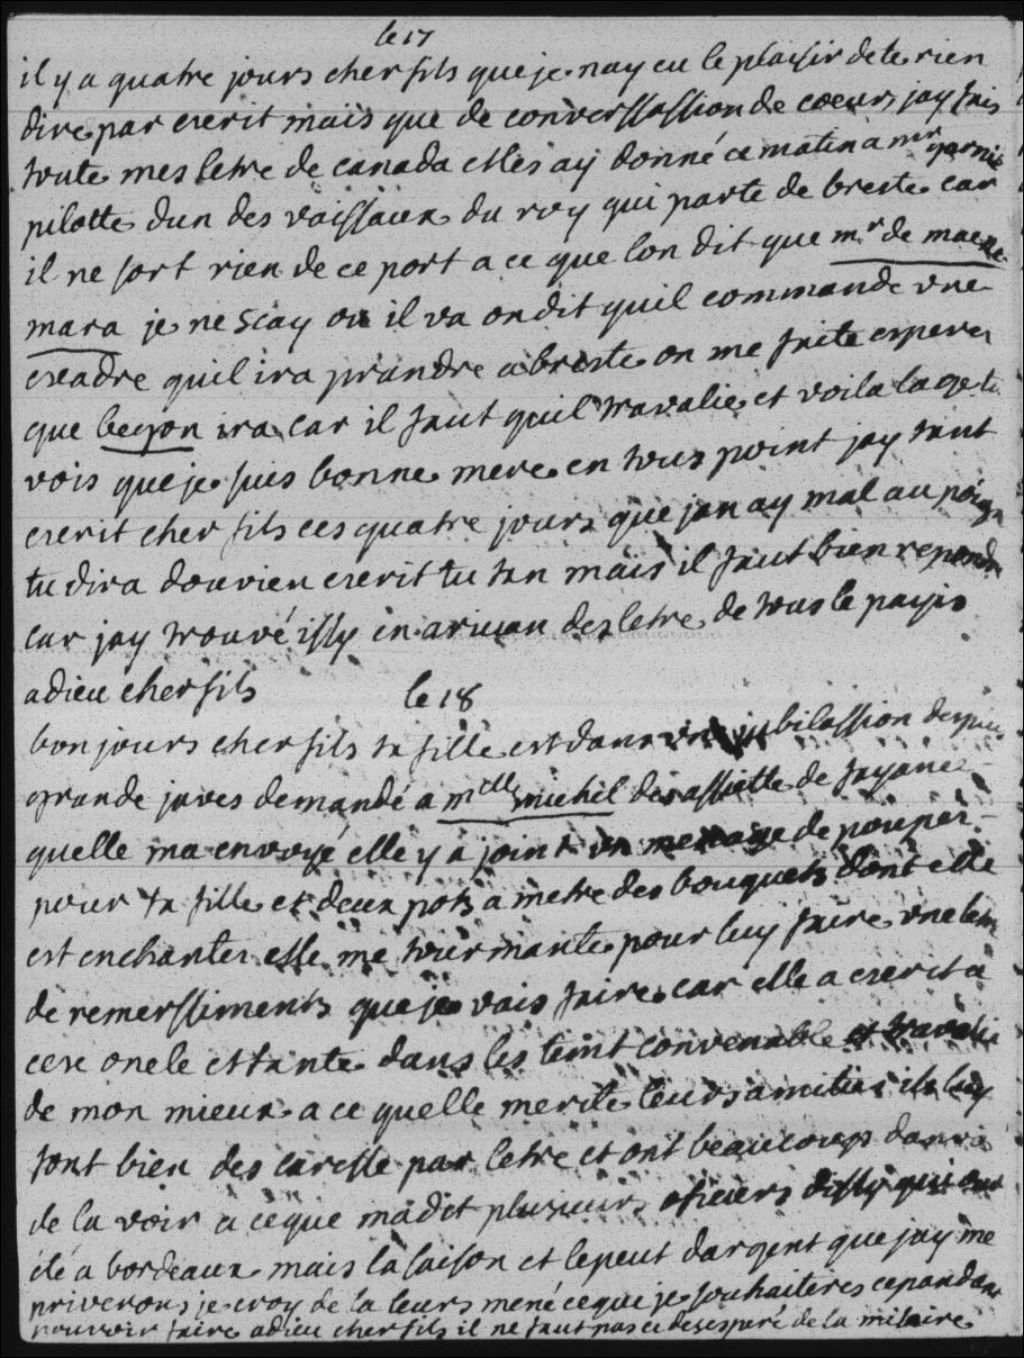 le 17
il y a quatre jours cher fils que je nay eu le plaisir de te rien
dire parecrit mais que de converssassion de coeur, jay fais
toute mes letre de canada elles ay donné ce matin a mr garnie
pilotte dun des vaissaux du roy qui parte de breste car
il ne sort rien de ce port a ce que lon dit que mr de macne
mara je ne scay ou il va on dit quil commande une
escadre quil ira prandre a breste on me faite esperer
que begon ira car il faut quil travalie et voila lage tu
vois que je suis bonne mere en tous point jay tant
ecrit cher fils ces quatre jours que jan ay mal au poign
tu dira dou vien ecrit tu tan mais il faut bien repondre
car jay trouvé issy en arivan des letre de tous le payis
adieu cher fils
le 18
bonjours cher fils ta fille est dans une jubilassion des plus
grande javes demandé a mlle michel des assiette de fayance
quelle ma envoyé elle y a joint un menage de poupée
pour ta fille et deux pots a metre des bouquets dont elle
est enchantée elle me tourmante pour luy faire une letre
de remerssiments que je vais faire car elle a ecrit a
cese oncle et tante dans les temt convenable et travalie
de mon mieux a ce quelle merite leurs amitiés ils luy
font bien des caresse par letre et ont beaucoups danvie
de la voir a ce que ma dit plusieurs oficiers dissy qui ont
été a bordeaux mais la saison et le peut dargent que jay me
priverons je croy de la leurs mené ce que je souhaiteres cepandant
pouvoir faire adieu cher fils il ne faut pas ce desesperé de la milaire